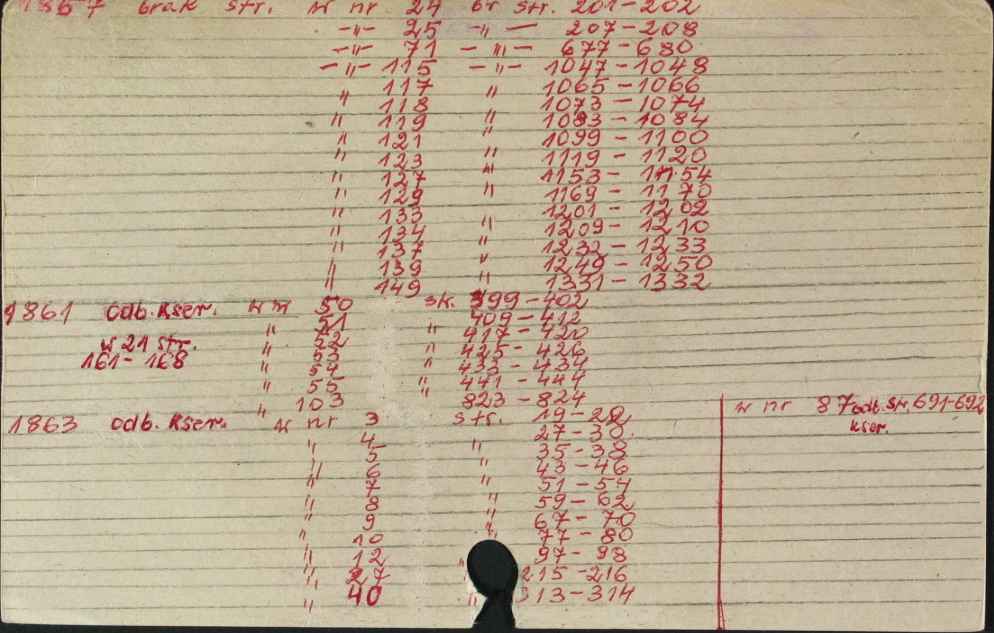 1867 brak str. w nr 24 br str. 201-202
-"- 25 -"- 207-208
-"- 71 -"- 677-680
-"- 115 -"- 1047-1048
" 117 " 1065-1066
" 118 " 1073-1074
" 119 " 1083-1084
" 121 " 1099-1100
" 123 " 1119-1120
" 127 " 1153-1154
" 129 " 1169-1170
" 133 1201-1202
" 134 " 1209-1210
" 137 " 1232-1233
" 139 " 1249-1250
" 149 " 1331-1332
1861 odb. kser. w nr 50 str. 399-402
" 51 " 409-412
w 21 str. " 52 " 417-420
161-168 " 53 " 425-426
" 54 " 433-434
" 55 " 441-444
" 103 823-824
1863 odb. kser. w nr 3 str. 19-22
" 4 27-30
" 5 " 35-38
" 6 " 43-46
" 7 " 51-54
" 8 " 59-62
" 9 " 67-70
" 10 " 77-80
" 12 97-98
" 27 " 215-216
" 40 " 313-314
w nr 87 odb. str. 691-692
kser.